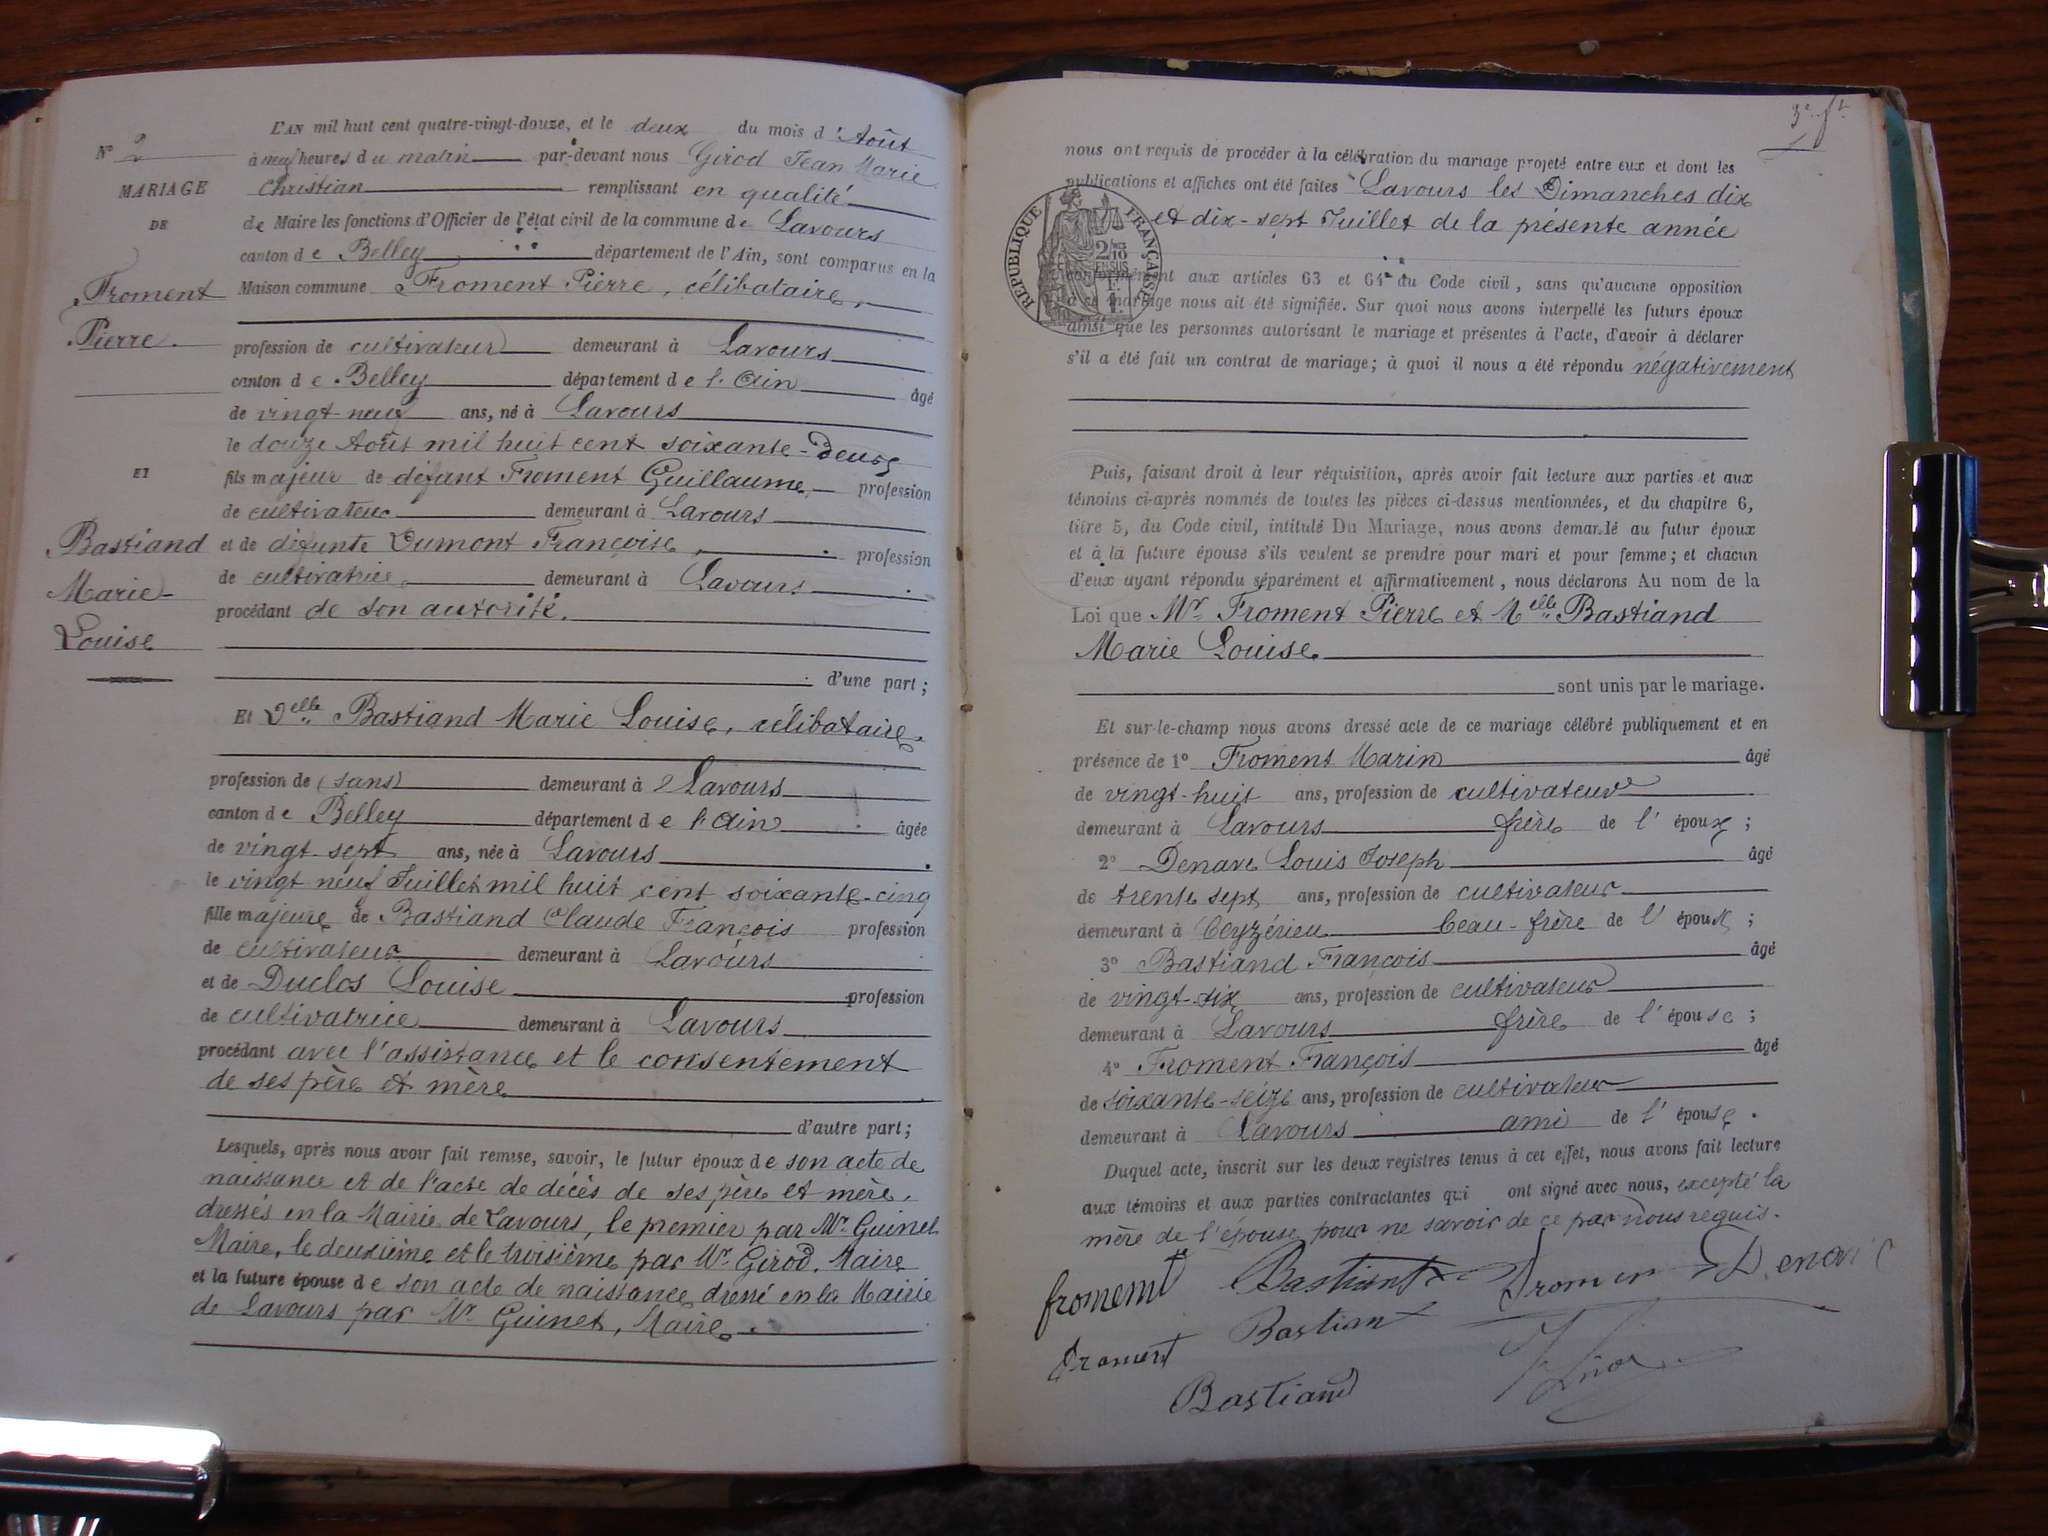 L'AN mil huit cent quatre-vingt-douze, et le deux du mois d'Août
N° 2
à neuf heures du matin par-devant nous Girod Jean Marie
MARIAGE
Christian remplissant en qualité
DE
de Maire les fonctions d'Officier de l'état civil de la commune de Lavours
canton de Belley département de l'Ain, sont comparus en la
Froment
Maison commune Froment Pierre, célibataire,
Pierre.
profession de cultivateur demeurant à Lavours
canton de Belley département de l'Ain âgé
de vingt-neuf ans, né à Lavours
le douze Août mil huit cent soixante-deux
ET
fils majeur de défunt Froment Guillaume, profession
de cultivateur demeurant à Lavours
Bastiand
et de défunte Dumont Françoise, profession
Marie-
de cultivatrice demeurant à Lavours
procédant de son autorité.
Louise
d'une part;
Et Delle Bastiand Marie Louise, célibataire.
profession de (sans) demeurant à Lavours
canton de Belley département de l'Ain âgée
de vingt-sept ans, née à Lavours
le vingt neuf Juillet mil huit cent soixante-cinq
fille majeure de Bastiand Claude François profession
de cultivateur demeurant à Lavours
et de Duclos Louise profession
de cultivatrice demeurant à Lavours
procédant avec l'assistance et le consentement
de ses père et mère
d'autre part;
Lesquels, après nous avoir fait remise, savoir, le futur époux de son acte de
naissance et de l'acte de décès de ses père et mère,
dressés en la Mairie de Lavours, le premier par Mr Guinet
Maire, le deuxième et le troisième par Mr Girod, Maire
et la future épouse de son acte de naissance dressé en la Mairie
de Lavours par Mr Guinet, Maire.
nous ont requis de procéder à la célébration du mariage projeté entre eux et dont les
publications et affiches ont été faites Lavours les Dimanches dix
et dix-sept Juillet de la présente année
RÉPUBLIQUE FRANÇAISE
conformément aux articles 63 et 64 du Code civil, sans qu'aucune opposition
à ce mariage nous ait été signifiée. Sur quoi nous avons interpellé les futurs époux
ainsi que les personnes autorisant le mariage et présentes à l'acte, d'avoir à déclarer
s'il a été fait un contrat de mariage; à quoi il nous a été répondu négativement
Puis, faisant droit à leur réquisition, après avoir fait lecture aux parties et aux
témoins ci-après nommés de toutes les pièces ci-dessus mentionnées, et du chapitre 6,
titre 5, du Code civil, intitulé Du Mariage, nous avons demandé au futur époux
et à la future épouse s'ils veulent se prendre pour mari et pour femme; et chacun
d'eux ayant répondu séparément et affirmativement, nous déclarons Au nom de la
Loi que Mr Froment Pierre et Melle Bastiand
Marie Louise.
sont unis par le mariage.
Et sur-le-champ nous avons dressé acte de ce mariage célébré publiquement et en
présence de 1° Froment Marin âgé
de vingt-huit ans, profession de cultivateur
demeurant à Lavours frère de l'époux;
2° Denave Louis Joseph âgé
de trente sept ans, profession de cultivateur
demeurant à Ceyzérieu beau-frère de l'époux;
3° Bastiand François âgé
de vingt-six ans, profession de cultivateur
demeurant à Lavours frère de l'épouse;
4° Froment François âgé
de soixante-seize ans, profession de cultivateur
demeurant à Lavours ami de l'épouse.
Duquel acte, inscrit sur les deux registres tenus à cet effet, nous avons fait lecture
aux témoins et aux parties contractantes qui ont signé avec nous, excepté la
mère de l'épouse pour ne savoir de ce par nous requis.
froment Bastiant
froment Bastiant
Bastiand